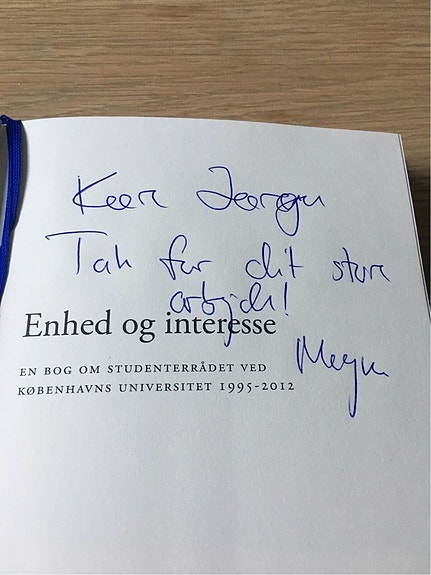 Kære Jørgen
Tak for dit store
arbejde!
Enhed og interesse
EN BOG OM STUDENTERRÅDET VED
KØBENHAVNS UNIVERSITET 1995-2012